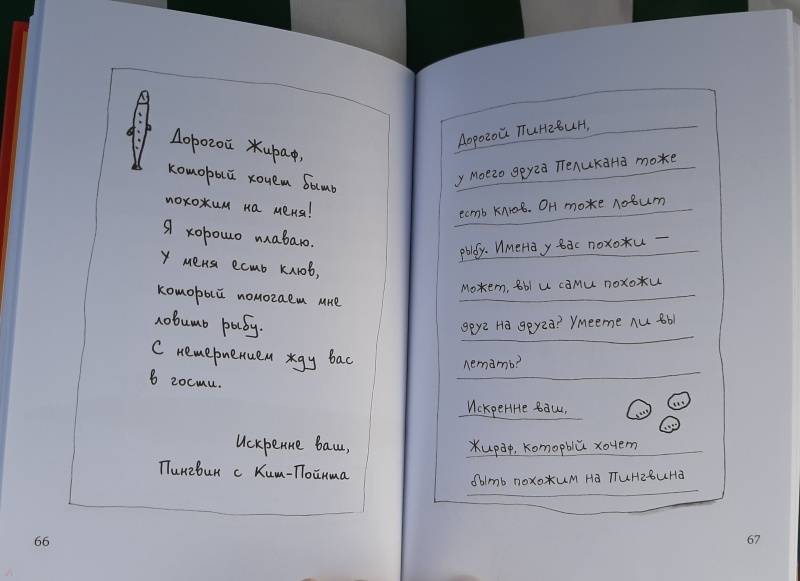 Дорогой Жираф,
который хочет быть
похожим на меня!
Я хорошо плаваю.
У меня есть клюв,
который помогает мне
ловить рыбу.
С нетерпением жду вас
в гости.
Искренне ваш,
Пингвин с Кит-Пойнта
66
Дорогой Пингвин,
у моего друга Пеликана тоже
есть клюв. Он тоже ловит
рыбу. Имена у вас похожи —
может, вы и сами похожи
друг на друга? Умеете ли вы
летать?
Искренне ваш,
Жираф, который хочет
быть похожим на Пингвина
67